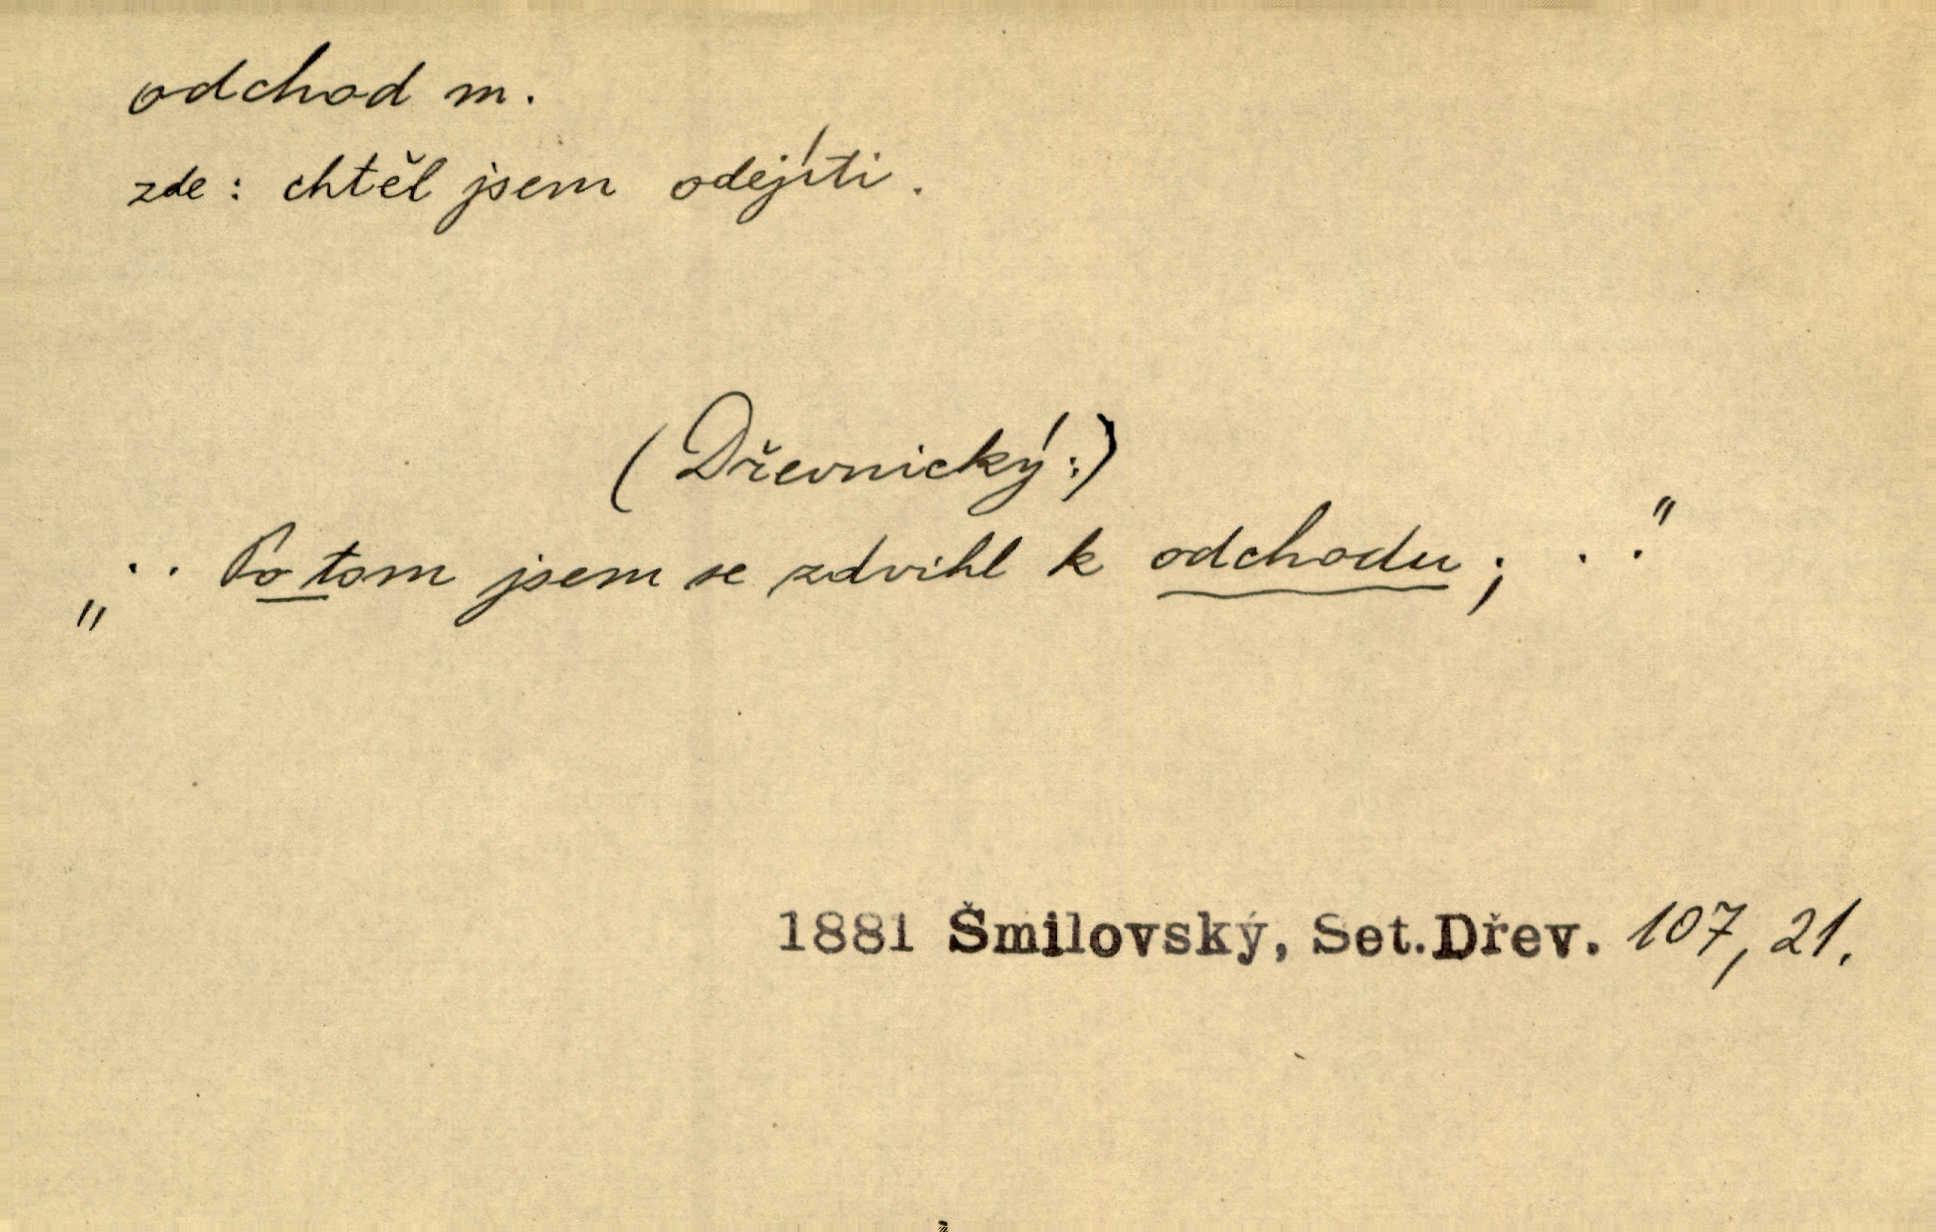 odchod m.
zde: chtěl jsem odejíti.
(Dřevnický:)
„.. Po tom jsem se zdvihl k odchodu; .."
1881 Šmilovský, Set.Dřev. 107, 21.